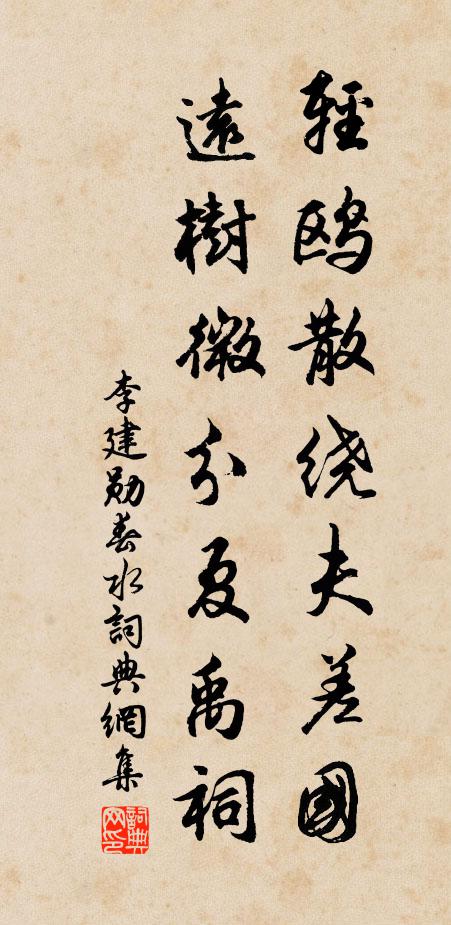 輕鸥散绕夫差國
遠樹微分夏禹祠
李建勋春水詞典網集
詞典网印